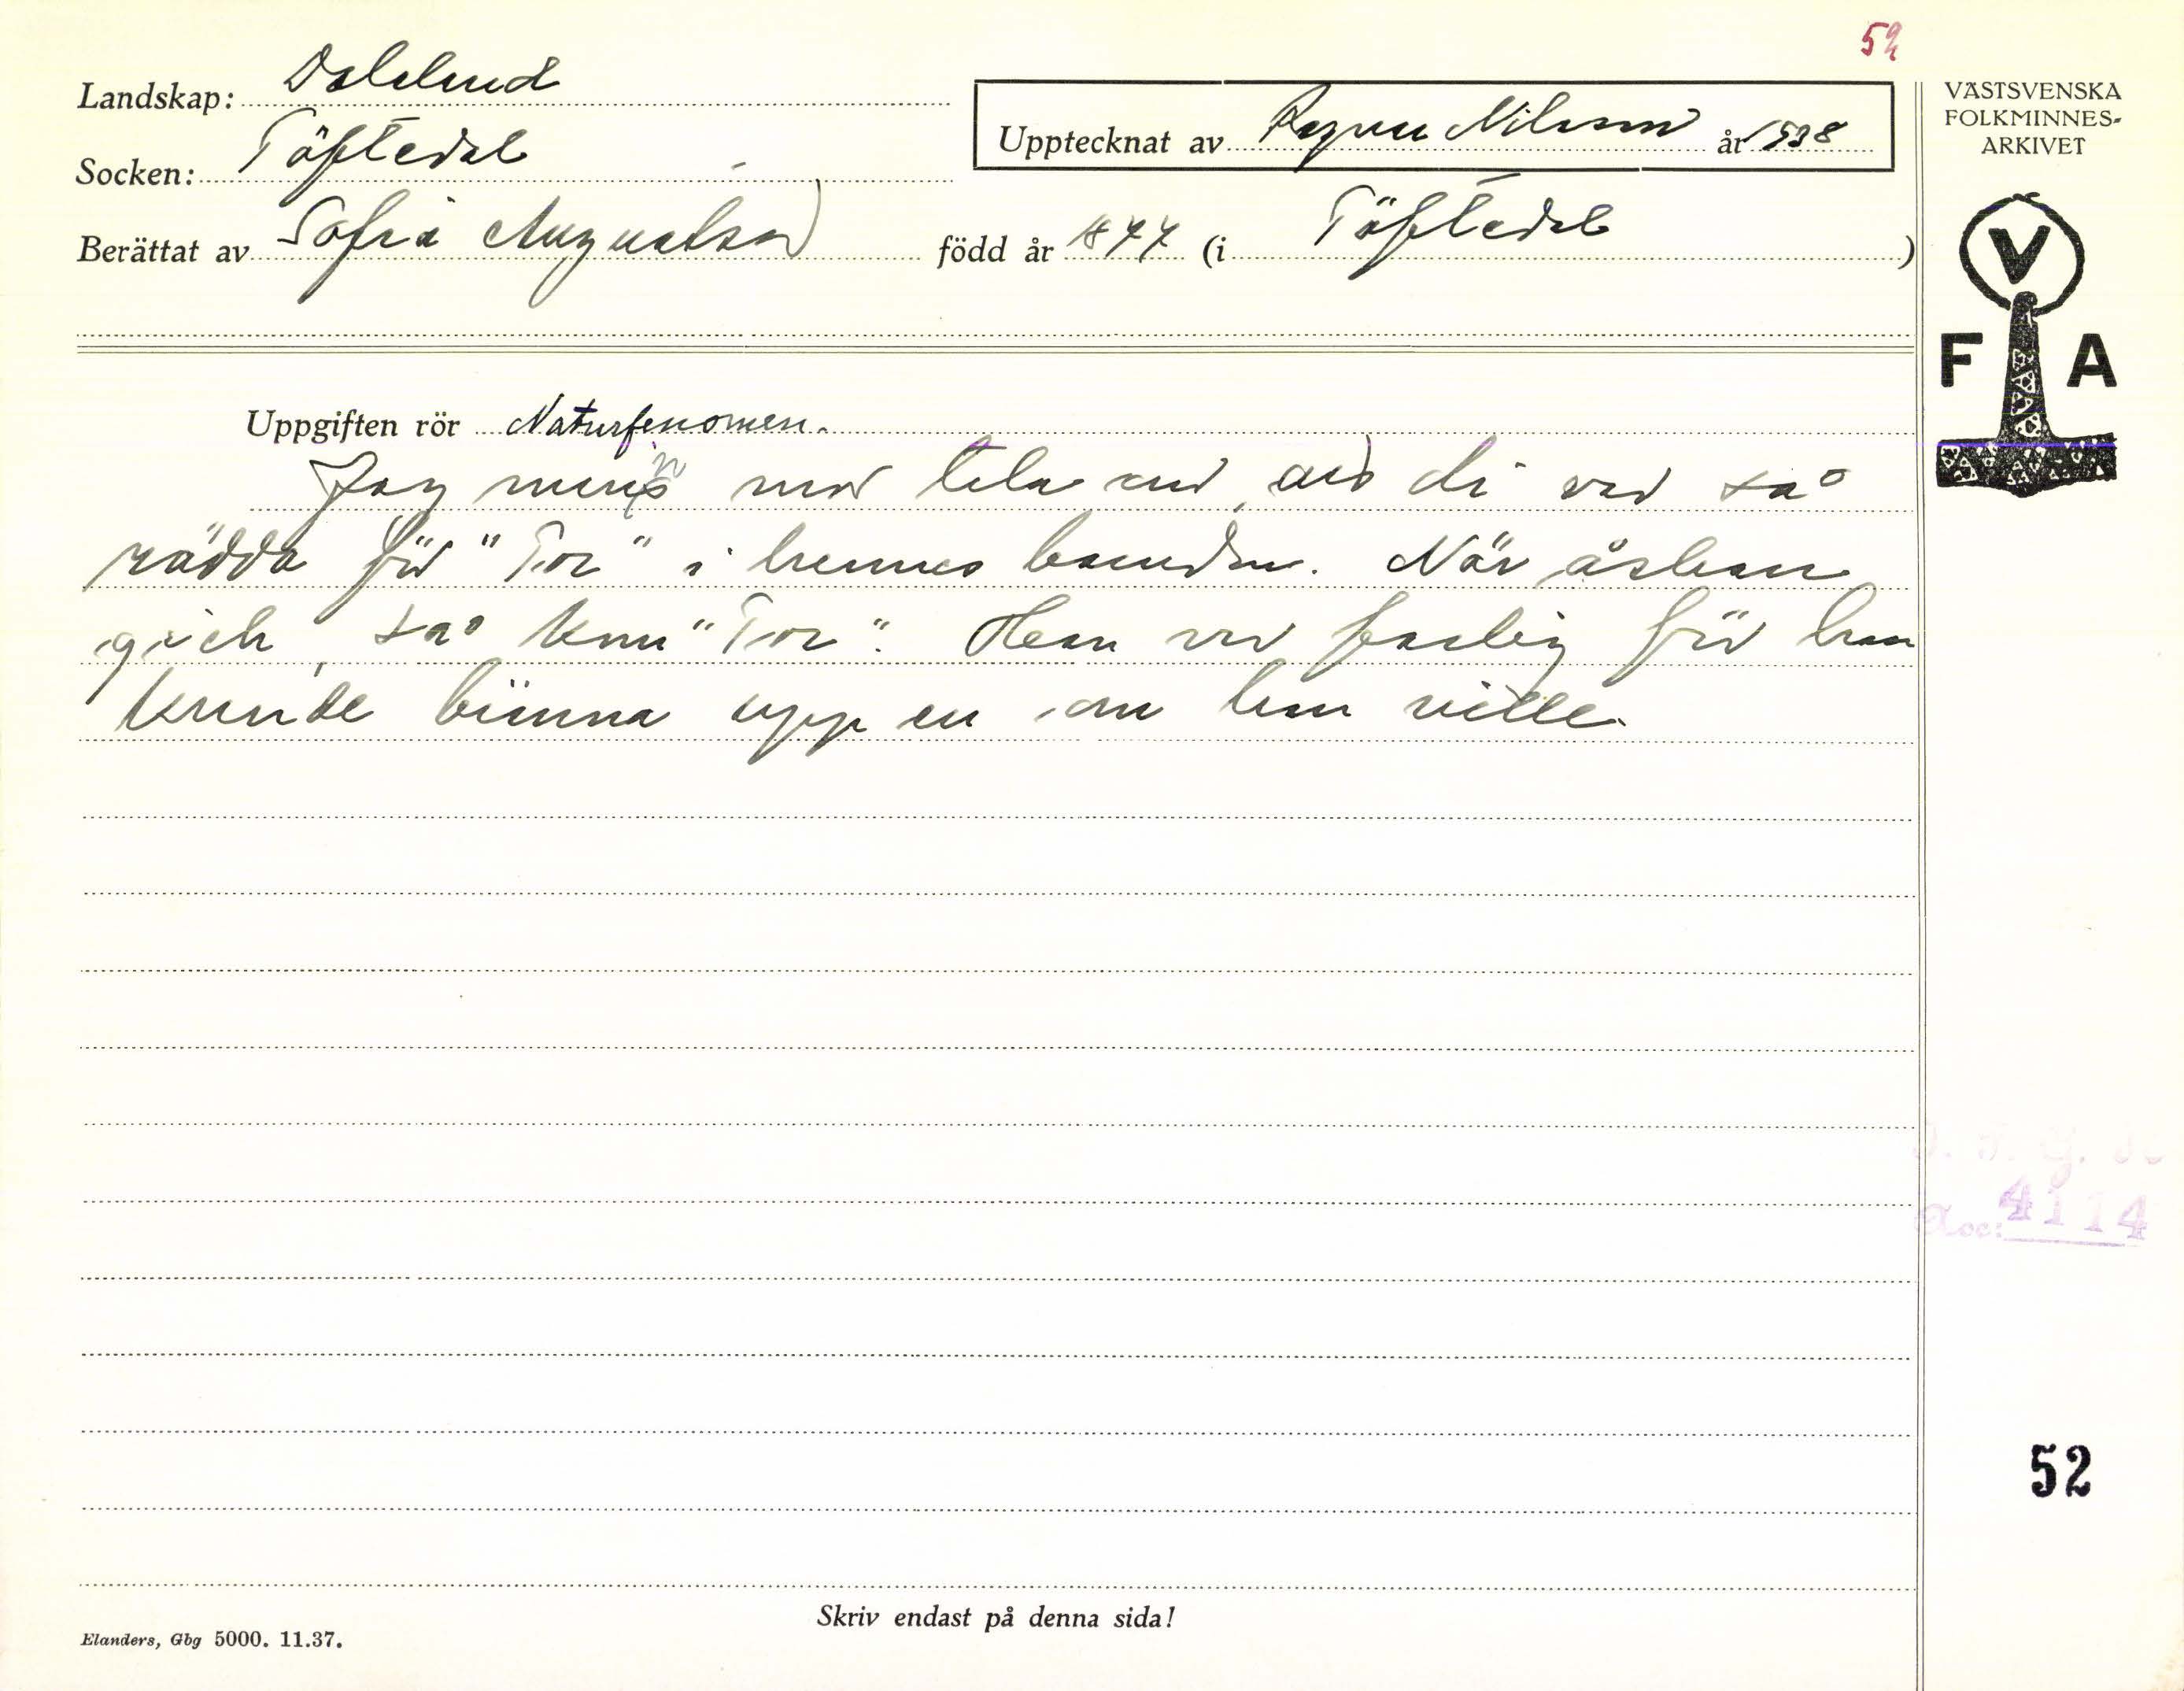 52
Landskap: Dalsland
Upptecknat av Ragnar Nilsson år 1938
VÄSTSVENSKA
FOLKMINNES-
ARKIVET
Socken: Töftedal
Berättat av Sofia Augustson född år 1877 (i Töftedal)
V
F A
Uppgiften rör Naturfenomen.
Jag minns mor tala om, att di var så
rädda för "Tor" i hennes barndom. När åskan
gick, så kom "Tor". Han var farlig för han
kunde bränna upp en om han ville.
Acc: 4114
52
Skriv endast på denna sida!
Elanders, Gbg 5000. 11.37.